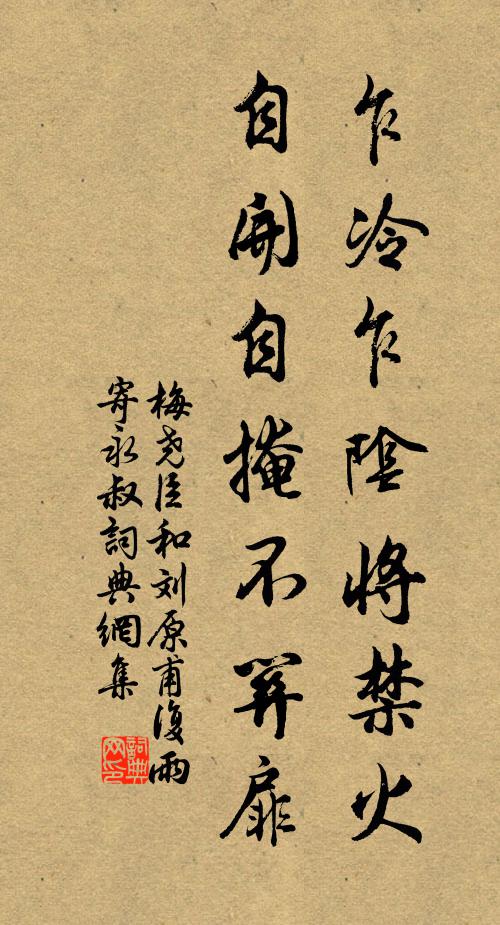 乍冷乍陰將禁火
自開自掩不關扉
梅尧臣和刘原甫復雨
寄永叔詞典網集
詞典
网印